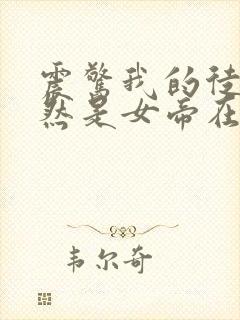 震惊我的徒
然是女帝在
韦尔奇